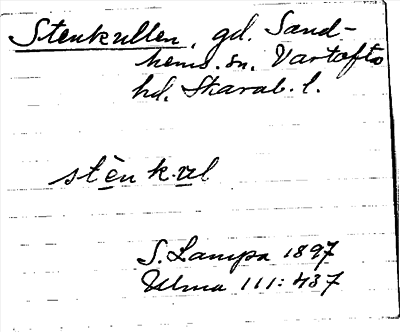 Stenkullen, gd. Sand-
hems sn. Vartofta
hd. Skarab. l.
stènkul
S. Lampa 1897
Ulma 111:437